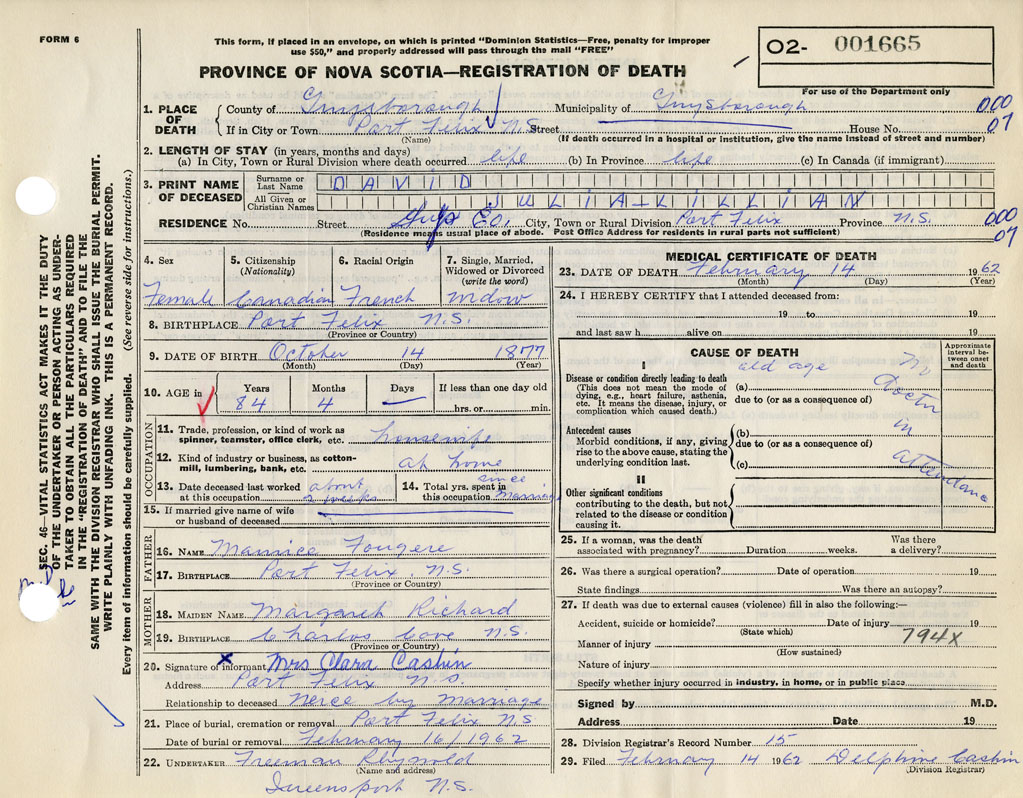 FORM 6
This form, if placed in an envelope, on which is printed "Dominion Statistics—Free, penalty for improper
use $50," and properly addressed will pass through the mail "FREE"
PROVINCE OF NOVA SCOTIA—REGISTRATION OF DEATH
O2- 001665
For use of the Department only
SEC. 46- VITAL STATISTICS ACT MAKES IT THE DUTY
OF THE UNDERTAKER OR PERSON ACTING AS UNDER-
TAKER TO OBTAIN ALL THE PARTICULARS REQUIRED
IN THE "REGISTRATION OF DEATH" AND TO FILE THE
SAME WITH THE DIVISION REGISTRAR WHO SHALL ISSUE THE BURIAL PERMIT.
WRITE PLAINLY WITH UNFADING INK. THIS IS A PERMANENT RECORD.
Every item of information should be carefully supplied. (See reverse side for instructions.)
1. PLACE OF DEATH
County of Guysborough Municipality of Guysborough 000
If in City or Town Port Felix N.S. Street House No. 07
(Name) (If death occurred in a hospital or institution, give the name instead of street and number)
2. LENGTH OF STAY (in years, months and days)
(a) In City, Town or Rural Division where death occurred life (b) In Province life (c) In Canada (if immigrant)
3. PRINT NAME OF DECEASED
Surname or Last Name DAVID
All Given or Christian Names JULIA-LILLIAN
RESIDENCE No. Street Guys Co. City, Town or Rural Division Port Felix Province N.S. 000
(Residence means usual place of abode. Post Office Address for residents in rural parts not sufficient) 07
4. Sex
Female
5. Citizenship
(Nationality)
Canadian
6. Racial Origin
French
7. Single, Married,
Widowed or Divorced
(write the word)
Widow
8. BIRTHPLACE Port Felix N.S.
(Province or Country)
9. DATE OF BIRTH October 14 1877
(Month) (Day) (Year)
10. AGE in
Years 84
Months 4
Days —
If less than one day old
hrs. or min.
OCCUPATION
11. Trade, profession, or kind of work as
spinner, teamster, office clerk, etc. housewife
12. Kind of industry or business, as cotton-
mill, lumbering, bank, etc. at home
13. Date deceased last worked about
at this occupation 2 weeks
14. Total yrs. spent in since
this occupation marriage
15. If married give name of wife
or husband of deceased
FATHER
16. NAME Maurice Fougere
17. BIRTHPLACE Port Felix, N.S.
(Province or Country)
MOTHER
18. MAIDEN NAME Margaret Richard
19. BIRTHPLACE Charlos Cove N.S.
(Province or Country)
20. Signature of informant X Mrs Clara Cashin
Address Port Felix N.S.
Relationship to deceased neice by marriage
21. Place of burial, cremation or removal Port Felix NS
Date of burial or removal February 16/1962
22. UNDERTAKER Freeman
(Name and address)
N.S.
MEDICAL CERTIFICATE OF DEATH
23. DATE OF DEATH February 14 1962
(Month) (Day) (Year)
24. I HEREBY CERTIFY that I attended deceased from:
19 to 19
and last saw h alive on 19
CAUSE OF DEATH
Approximate
interval be-
tween onset
and death
I
Disease or condition directly leading to death
(This does not mean the mode of
dying, e.g., heart failure, asthenia,
etc. It means the disease, injury, or
complication which caused death.)
(a) old age
due to (or as a consequence of)
No
doctor
in
attendance
Antecedent causes
Morbid conditions, if any, giving
rise to the above cause, stating the
underlying condition last.
(b)
due to (or as a consequence of)
(c)
II
Other significant conditions
contributing to the death, but not
related to the disease or condition
causing it.
25. If a woman, was the death Was there
associated with pregnancy? Duration weeks. a delivery?
26. Was there a surgical operation? Date of operation 19
State findings Was there an autopsy?
27. If death was due to external causes (violence) fill in also the following:—
Accident, suicide or homicide? Date of injury 19
(State which) 794X
Manner of injury
(How sustained)
Nature of injury
Specify whether injury occurred in industry, in home, or in public place
Signed by M.D.
Address Date 19
28. Division Registrar's Record Number 15
29. Filed February 14 1962 Delphine Cashin
(Division Registrar)